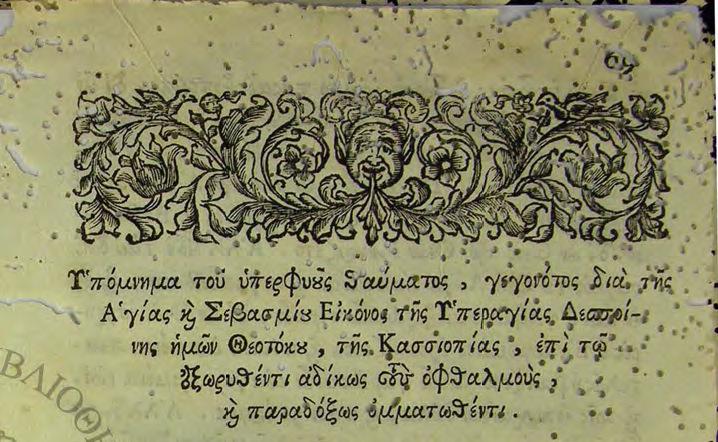 69
Ὑπόμνημα τοῦ ὑπερφυοῦς θαύματος, γεγονότος διὰ τῆς
Ἁγίας καὶ Σεβασμίου Εἰκόνος τῆς Ὑπεραγίας Δεσποί-
νης ἡμῶν Θεοτόκου, τῆς Κασσιοπίας, ἐπὶ τῷ
ἐξωρυθέντι ἀδίκως τοὺς ὀφθαλμοὺς,
καὶ παραδόξως ὀμματωθέντι.
ΒΛΙΟΘΗ